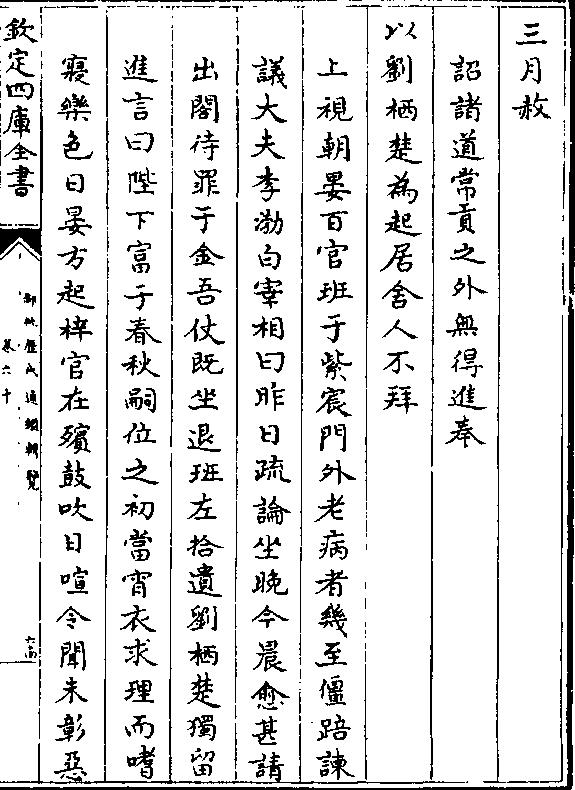 三月赦
詔諸道常貢之外無得進奉
以劉栖楚為起居舍人不拜
上視朝晏百官班于紫宸門外老病者幾至僵踣諫
議大夫李渤白宰相曰昨日疏論坐晚今晨愈甚請
出閤待罪于金吾仗既坐退班左拾遺劉栖楚獨留
進言曰陛下富于春秋嗣位之初當宵衣求理而嗜
寢樂色日晏方起梓官在殯鼓吹日喧令聞未彰惡
欽定四庫全書
御批歷代通鑑輯覽
卷六十